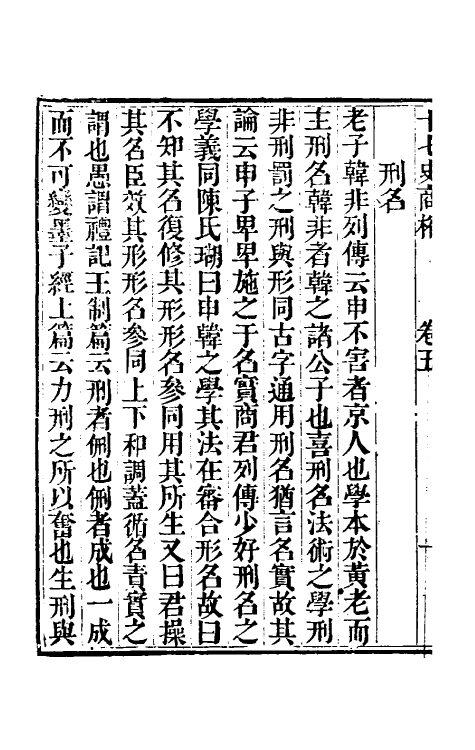 十七史商榷 卷五
刑名
老子韓非列傳云申不害者京人也學本於黃老而
主刑名韓非者韓之諸公子也喜刑名法術之學刑
非刑罰之刑與形同古字通用刑名猶言名實故其
論云申子卑卑施之于名實商君列傳少好刑名之
學義同陳氏瑚曰申韓之學其法在審合形名故曰
不知其名復修其形形名參同用其所生又曰君操
其名臣效其形形名參同上下和調蓋循名責實之
謂也愚謂禮記王制篇云刑者侀也侀者成也一成
而不可變墨子經上篇云力刑之所以奮也生刑與